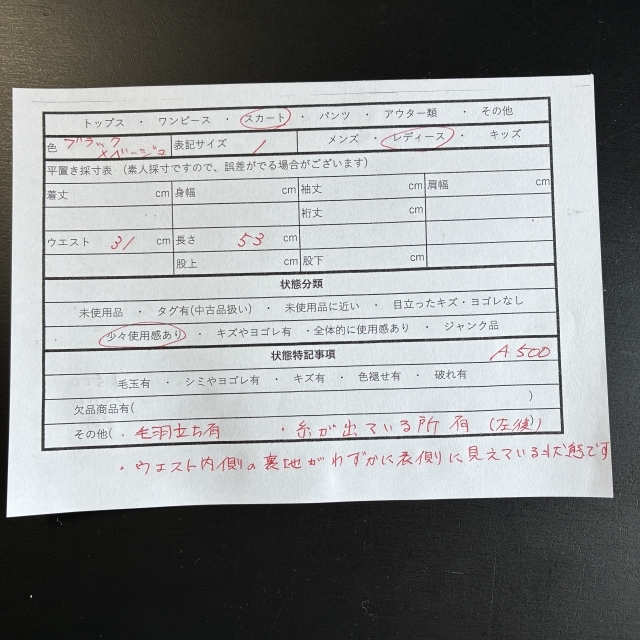 トップス ・ ワンピース ・ スカート ・ パンツ ・ アウター類 ・ その他
色 ブラック×ベージュ 表記サイズ 1 メンズ ・ レディース ・ キッズ
平置き採寸表 (素人採寸ですので、誤差がでる場合がございます)
着丈 cm 身幅 cm 袖丈 cm 肩幅 cm
裄丈 cm
ウエスト 31 cm 長さ 53 cm
股上 cm 股下 cm
状態分類
未使用品 ・ タグ有(中古品扱い) ・ 未使用品に近い ・ 目立ったキズ・ヨゴレなし
少々使用感あり ・ キズやヨゴレ有 ・全体的に使用感あり ・ ジャンク品
状態特記事項 A500
毛玉有 ・ シミやヨゴレ有 ・ キズ有 ・ 色褪せ有 ・ 破れ有
欠品商品有( )
その他( ・毛羽立ち有 ・糸が出ている所有 (左後))
・ウエスト内側の裏地がわずかに表側に見えている状態です